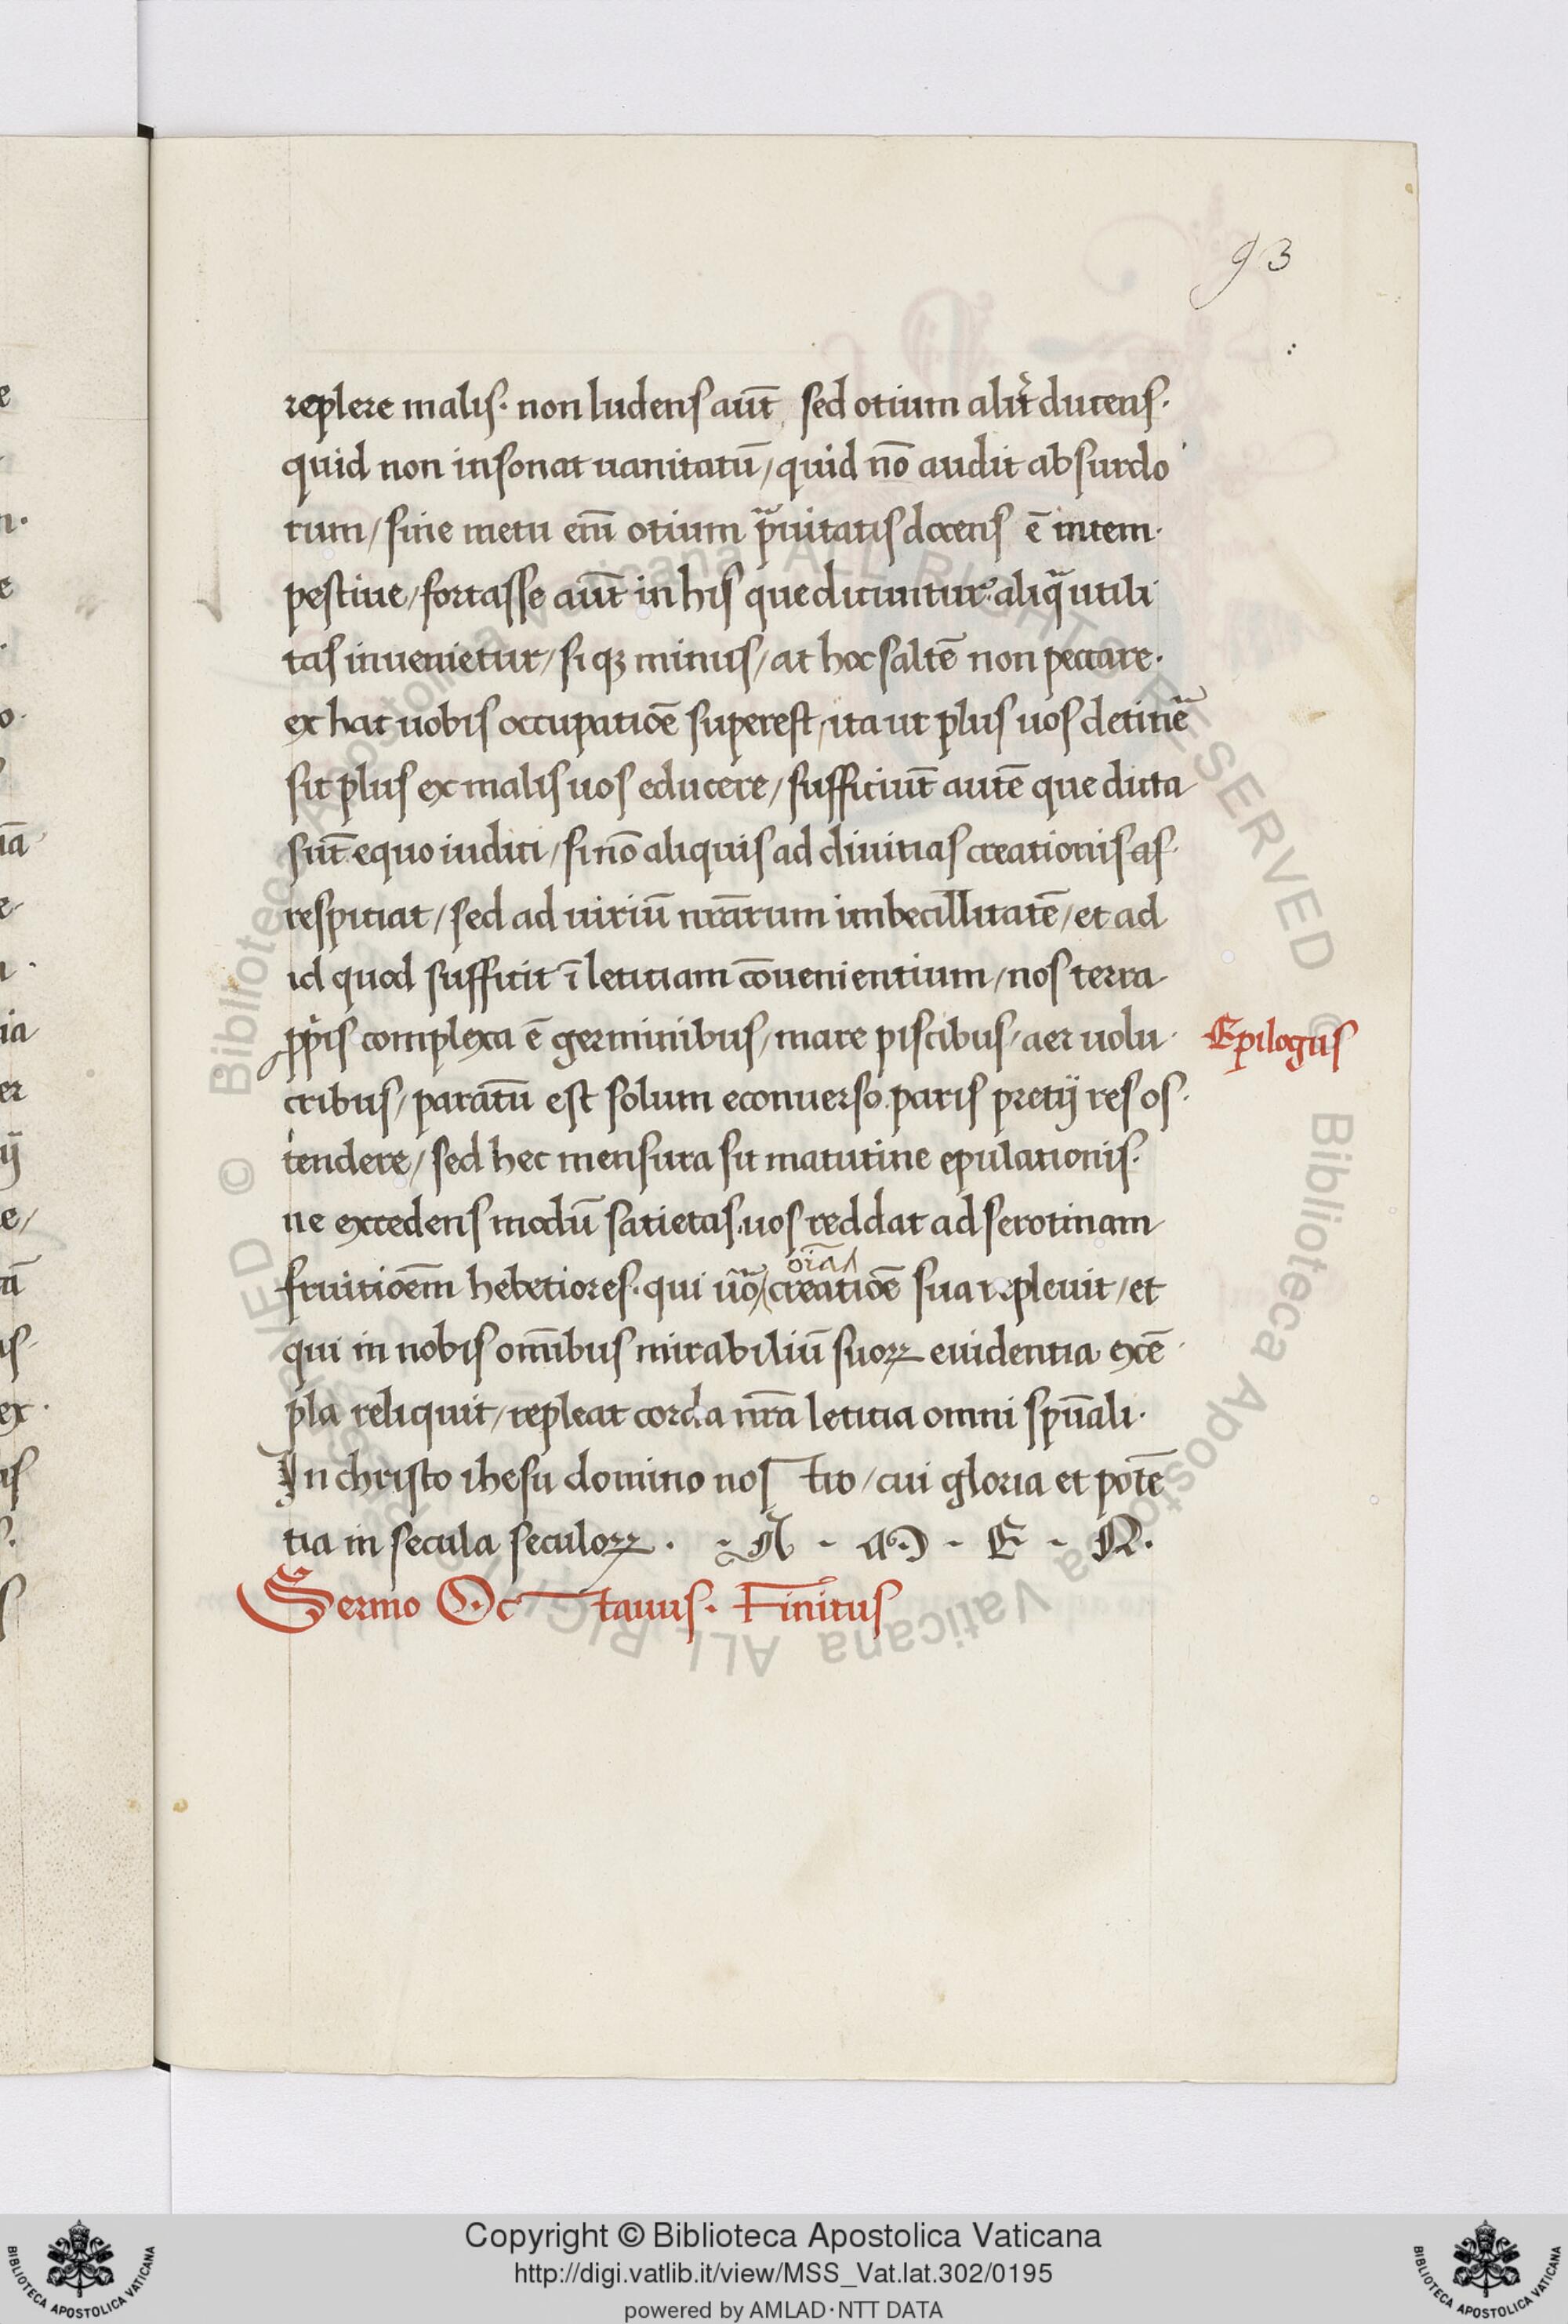 93
replere malis· non ludens aut̄ sed otium alit̉ ducens·
quid non insonat uanitatū/ quid nō audit absurdo
rum/ sine metu eni̅ otium pᵃuitatis docens ē intem·
pestiue/ fortasse aut̄ in his que dicuntur aliqᵃ utili
tas inuenietur/ si qꝫ minus/ at hoc saltē non peccare·
ex hac uobis occupatiōe superest/ ita ut plus uos detinē
sit plus ex malis uos educere/ sufficiūt autē que dicta
sūt equo iudici/ si nō aliquis ad diuitias creationis as
respiciat/ sed ad uiriū nr̄arum imbecillitatē/ et ad
id quod sufficit ī letitiam cōuenientium/ nos terra
ꝓpris complexa ē germinibus/ mare piscibus/ aer uolu·
cribus/ paratū est solum econuerso paris pretij res os·
tendere/ sed hec mensura sit matutine epulationis·
ne excedens modū satietas uos reddat ad serotinam
oīa
fruitiōem hebetiores· qui ūo creatiōe sua repleuit/ et
qui in nobis omībus mirabiliū suoꝝ euidentia exē
pla reliquit/ repleat corda nr̄a letitia omni spūali·
In christo ihesu domino nostro/ cui gloria et potē
tia in secula seculoꝝ· A - M - E - N·
Sermo Octauus· Finitus
Epilogus
© Biblioteca Apostolica Vaticana ALL RIGHTS RESERVED
© Biblioteca Apostolica Vaticana ALL RIGHTS RESERVED
Copyright © Biblioteca Apostolica Vaticana
http://digi.vatlib.it/view/MSS_Vat.lat.302/0195
powered by AMLAD·NTT DATA
BIBLIOTECA APOSTOLICA VATICANA
BIBLIOTECA APOSTOLICA VATICANA